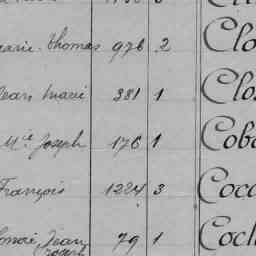 Marie-Thomas 976 2 Clo
Jean Marie 381 1 Clos
Mce Joseph 176 1 Cob
François 1224 3 Coca
Jean 79 1 Cocl
Joseph